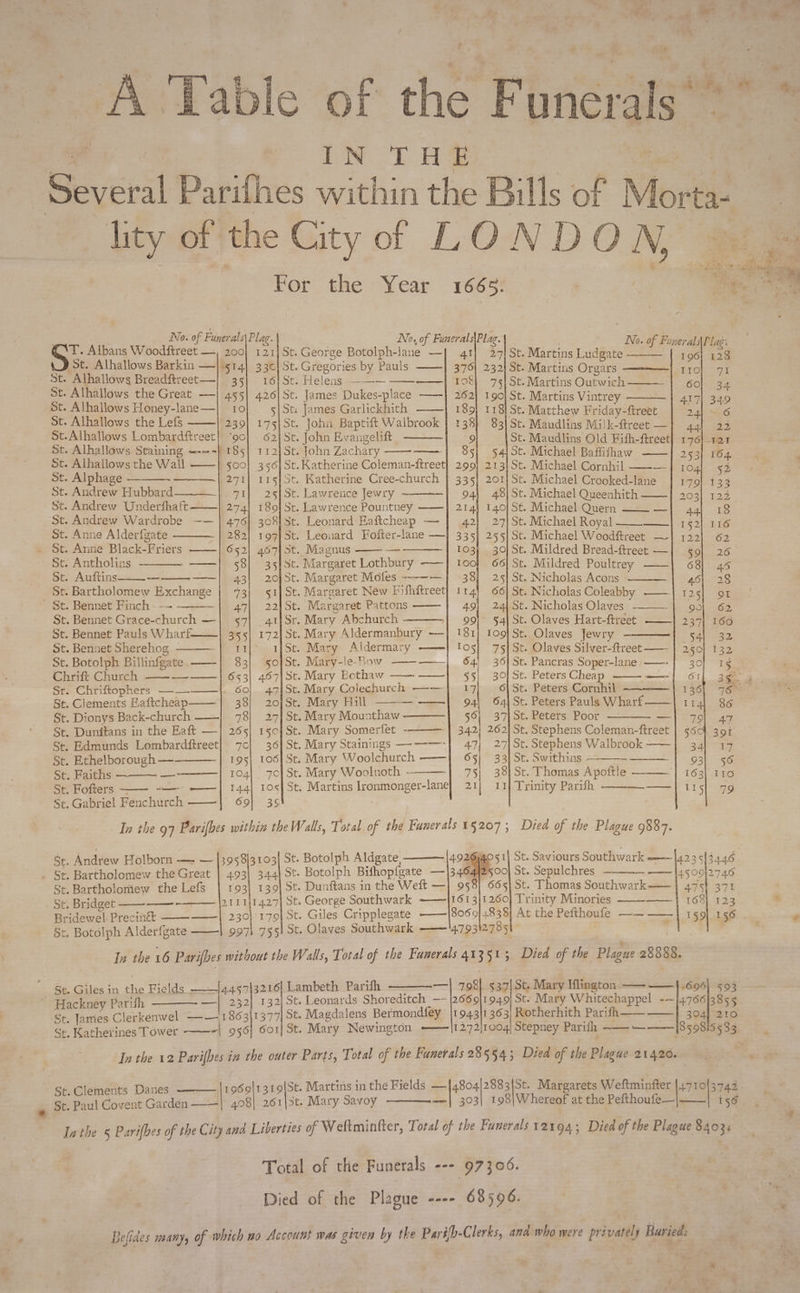 A Table of the Funerals
IN THE
Several Parishes within the Bills of Morta-
lity of the City of LONDON,
For the Year 1665.
No. of Funerals Plag.
ST. Albans Woodstreet — 200 121
St. Alhallows Barkin — 514 330
St. Alhallows Breadstreet — 35 16
St. Alhallows the Great — 455 426
St. Alhallows Honey-lane — 10 5
St. Alhallows the Less — 239 175
St. Alhallows Lombardstreet 90 62
St. Alhallows Staining — 185 112
St. Alhallows the Wall — 500 356
St. Alphage — 271 115
St. Andrew Hubbard — 71 25
St. Andrew Undershaft — 274 189
St. Andrew Wardrobe — 476 308
St. Anne Aldersgate — 282 197
St. Anne Black-Friers — 652 467
St. Antholins — 58 35
St. Austins — 43 20
St. Bartholomew Exchange 73 51
St. Bennet Finch — 47 22
St. Bennet Grace-church — 57 41
St. Bennet Pauls Wharf — 355 172
St. Bennet Sherehog — 11 1
St. Botolph Billinsgate — 83 50
Christ Church — 653 467
St. Christophers — 60 47
St. Clements Eastcheap — 38 20
St. Dionys Back-church — 78 27
St. Dunstans in the East — 265 150
St. Edmunds Lombardstreet 70 36
St. Ethelborough — 195 106
St. Faiths — 104 70
St. Fosters — 144 105
St. Gabriel Fenchurch — 69 35
No. of Funerals Plag.
St. George Botolph-lane — 41 27
St. Gregories by Pauls — 376 232
St. Helens — 108 75
St. James Dukes-place — 262 190
St. James Garlickhith — 189 118
St. John Baptist Walbrook 138 83
St. John Evangelist — 9
St. John Zachary — 85 54
St. Katherine Coleman-street 299 213
St. Katherine Cree-church 335 201
St. Lawrence Jewry — 94 48
St. Lawrence Pountney — 214 140
St. Leonard Eastcheap — 42 27
St. Leonard Foster-lane — 335 255
St. Magnus — 103 39
St. Margaret Lothbury — 100 66
St. Margaret Moses — 38 25
St. Margaret New Fishstreet 114 66
St. Margaret Pattons — 49 24
St. Mary Abchurch — 99 54
St. Mary Aldermanbury — 181 109
St. Mary Aldermary — 105 75
St. Mary-le-Bow — 64 36
St. Mary Bothaw — 55 30
St. Mary Colechurch — 17 6
St. Mary Hill — 94 64
St. Mary Mounthaw — 56 37
St. Mary Somerset — 342 262
St. Mary Stainings — 47 27
St. Mary Woolchurch — 65 33
St. Mary Woolnoth — 75 38
St. Martins Ironmonger-lane 21 11
No. of Funerals Plag.
St. Martins Ludgate — 196 128
St. Martins Orgars — 110 71
St. Martins Outwich — 60 34
St. Martins Vintrey — 417 349
St. Matthew Friday-street 24 6
St. Maudlins Milk-street — 44 22
St. Maudlins Old Fish-street 176 121
St. Michael Bassishaw — 253 164
St. Michael Cornhil — 104 52
St. Michael Crooked-lane 179 133
St. Michael Queenhith — 203 122
St. Michael Quern — 44 18
St. Michael Royal — 152 116
St. Michael Woodstreet — 122 62
St. Mildred Bread-street — 59 26
St. Mildred Poultrey — 68 46
St. Nicholas Acons — 46 28
St. Nicholas Coleabby — 125 91
St. Nicholas Olaves — 90 62
St. Olaves Hart-street — 237 160
St. Olaves Jewry — 54 32
St. Olaves Silver-street — 250 132
St. Pancras Soper-lane — 30 15
St. Peters Cheap — 61 35
St. Peters Cornhil — 136 76
St. Peters Pauls Wharf — 114 86
St. Peters Poor — 79 47
St. Stephens Coleman-street 560 391
St. Stephens Walbrook — 34 17
St. Swithins — 93 56
St. Thomas Apostle — 163 110
Trinity Parish — 115 79
In the 97 Parishes within the Walls, Total of the Funerals 15207; Died of the Plague 9887.
St. Andrew Holborn — 3958 3103
St. Bartholomew the Great 493 344
St. Bartholomew the Less 193 139
St. Bridget — 2111 1427
Bridewel Precinct — 230 179
St. Botolph Aldersgate — 997 755
St. Botolph Aldgate — 4926 4051
St. Botolph Bishopsgate — 3464 2500
St. Dunstans in the West — 958 665
St. George Southwark — 1613 1260
St. Giles Cripplegate — 8069 4838
St. Olaves Southwark — 4793 2785
St. Saviours Southwark — 4235 3446
St. Sepulchres — 4509 2746
St. Thomas Southwark — 475 371
Trinity Minories — 168 123
At the Pesthouse — 159 156
In the 16 Parishes without the Walls, Total of the Funerals 41351; Died of the Plague 28888.
St. Giles in the Fields — 4457 3216
Hackney Parish — 232 132
St. James Clerkenwel — 1863 1377
St. Katherines Tower — 956 601
Lambeth Parish — 798 537
St. Leonards Shoreditch — 2669 1949
St. Magdalens Bermondsey 1943 1363
St. Mary Newington — 1272 1004
St. Mary Islington — 696 593
St. Mary Whitechappel — 4766 3855
Rotherhith Parish — 304 210
Stepney Parish — 8598 5583
In the 12 Parishes in the outer Parts, Total of the Funerals 28554; Died of the Plague 21420.
St. Clements Danes — 1969 1319
St. Paul Covent Garden — 408 261
St. Martins in the Fields — 4804 2883
St. Mary Savoy — 303 198
St. Margarets Westminster 4710 3742
Whereof at the Pesthouse — 156
In the 5 Parishes of the City and Liberties of Westminster, Total of the Funerals 12194; Died of the Plague 8403.
Total of the Funerals --- 97306.
Died of the Plague ---- 68596.
Besides many, of which no Account was given by the Parish-Clerks, and who were privately Buried.